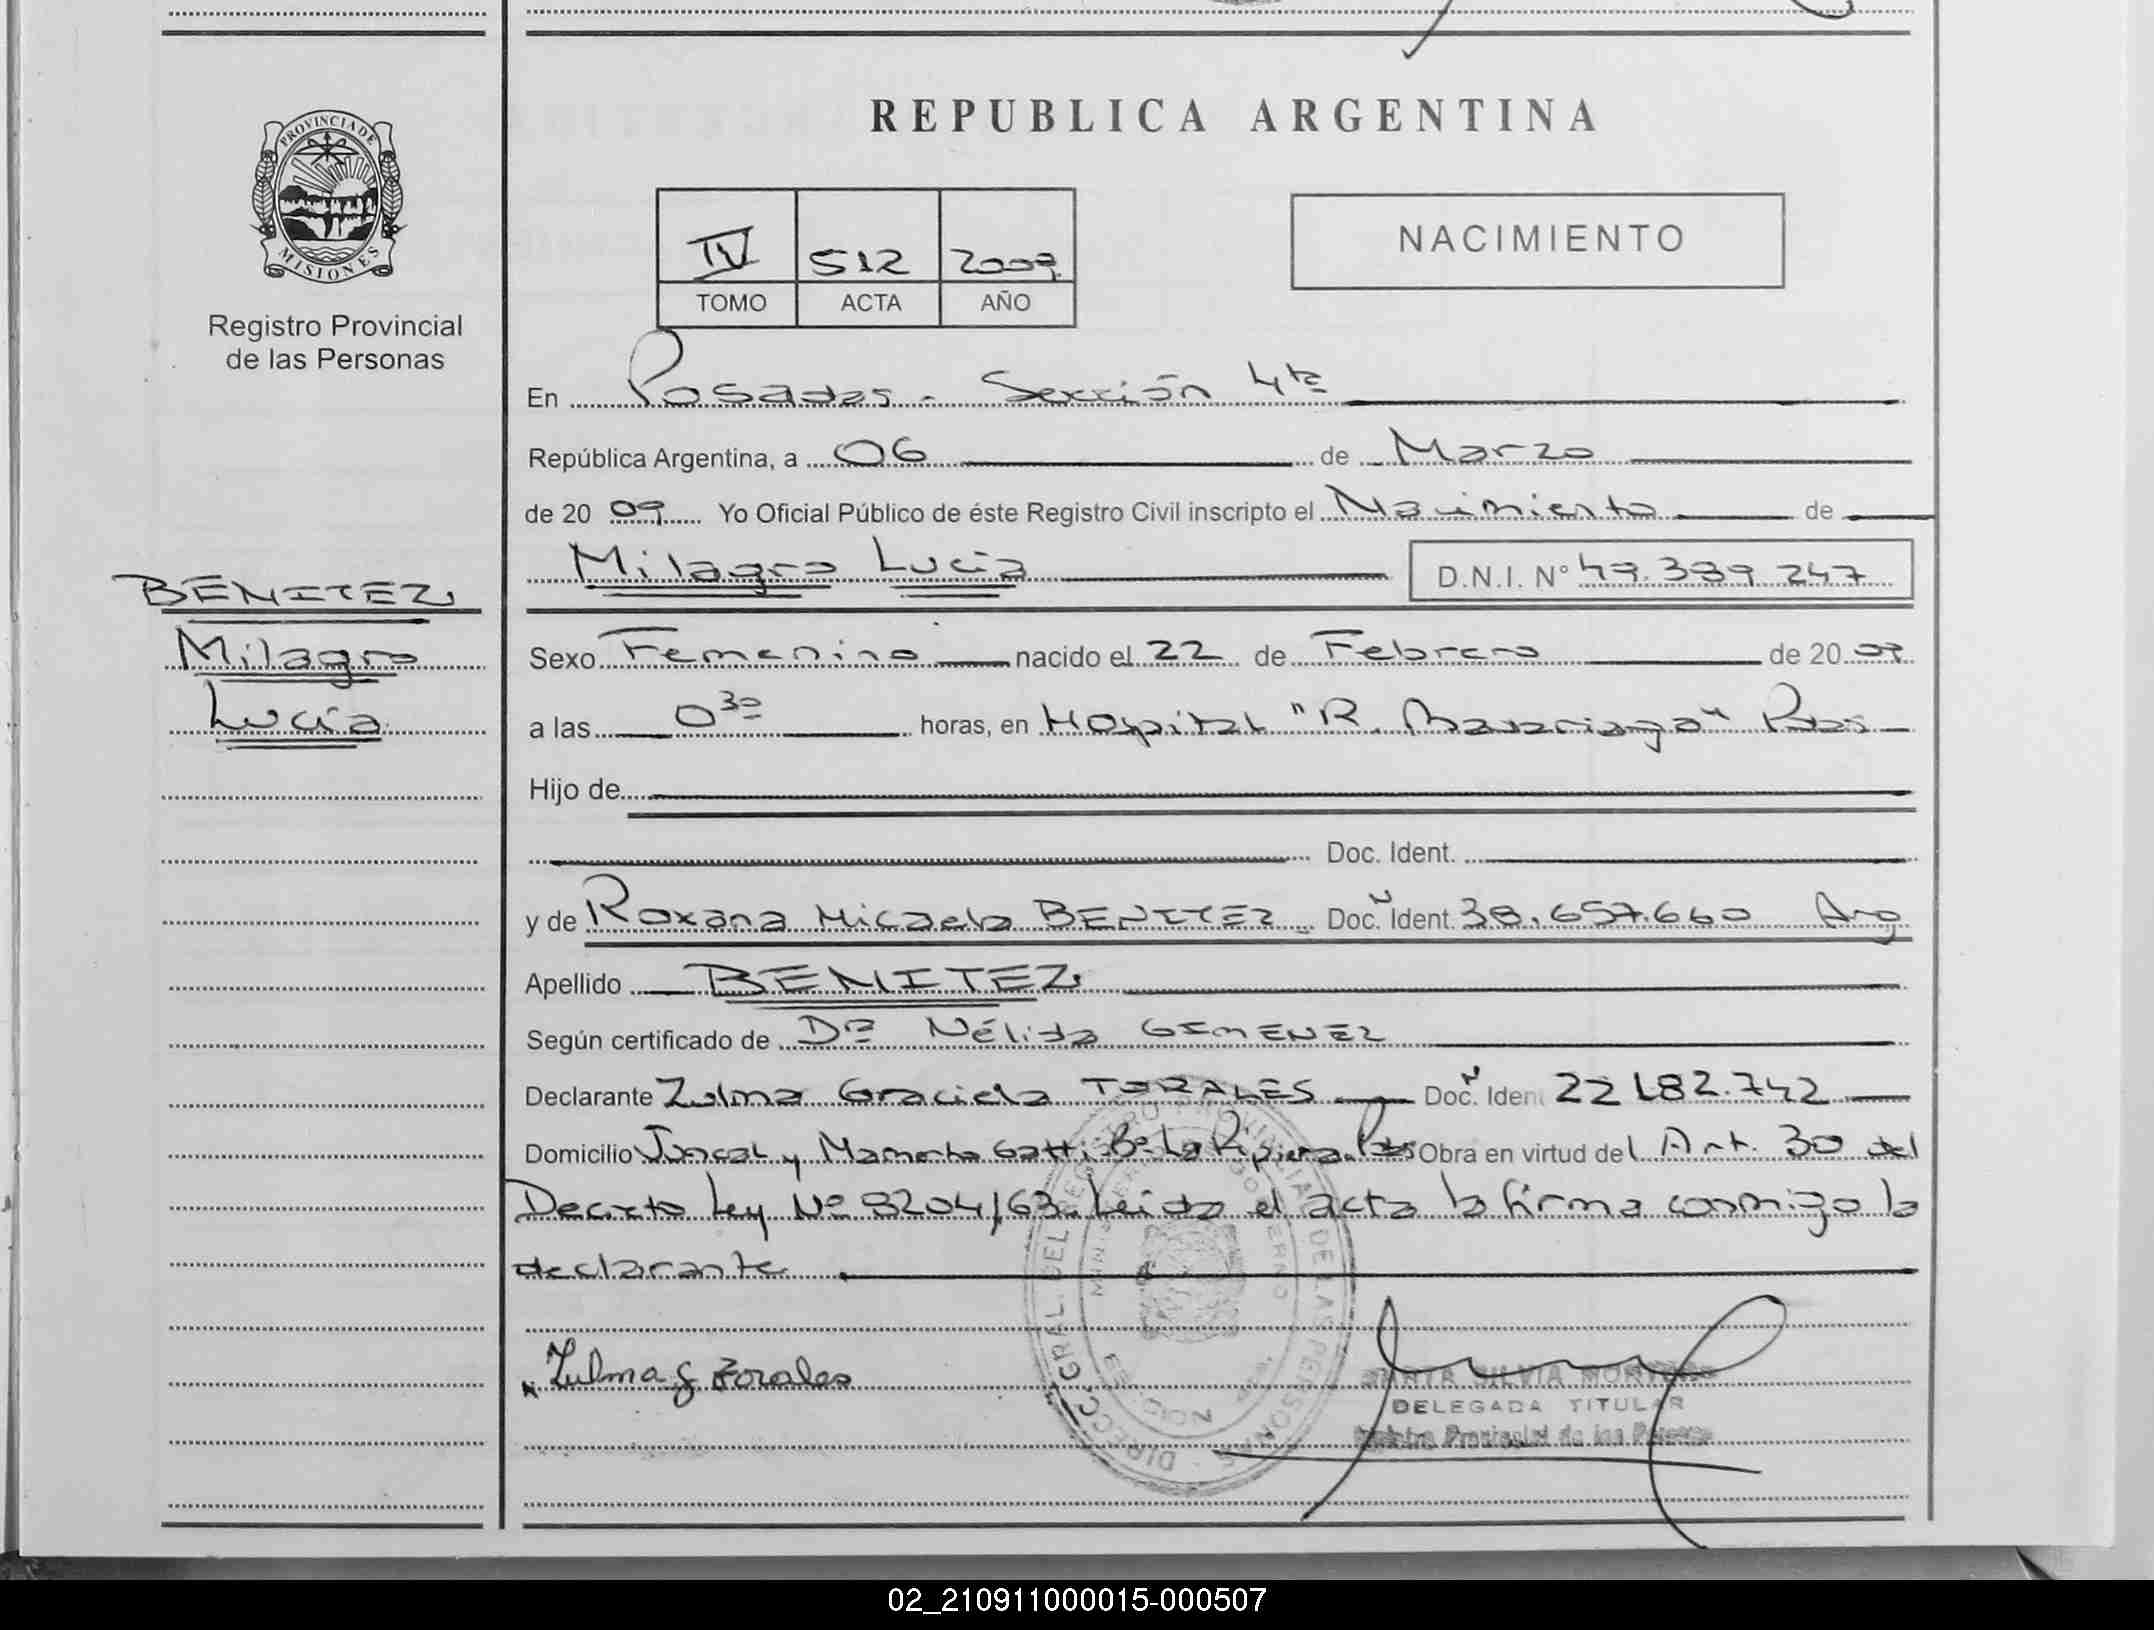 REPUBLICA ARGENTINA
PROVINCIA DE MISIONES
Registro Provincial
de las Personas
IV 512 2009
TOMO ACTA AÑO
NACIMIENTO
En Posadas - Sección 4ta
República Argentina, a 06 de Marzo
de 20 09 Yo Oficial Público de éste Registro Civil inscripto el Nacimiento de
Milagro Lucia D.N.I. Nº 49.399 247
BENITEZ
Milagro
Lucia
Sexo Femenino nacido el 22 de Febrero de 20 09
a las 0 30 horas, en Hospital "R. Madariaga" Pdas
Hijo de
Doc. Ident.
y de Roxana Micaela BENITEZ Doc. Ident. 38.657.660 Arg
Apellido BENITEZ
Según certificado de Dra Nélida GIMENEZ
Declarante Zulma Graciela TORALES Doc. Iden 22 182.742
Domicilio Juncal y Mamerto Gatti Bº La Ripiera Pdas Obra en virtud del Art. 30 del
Decreto Ley Nº 8204/63. Leida el acta la firma conmigo la
declarante
Zulma G Torales
SILVIA
DELEGADA TITULAR
Registro Provincial de las Personas
02_210911000015-000507